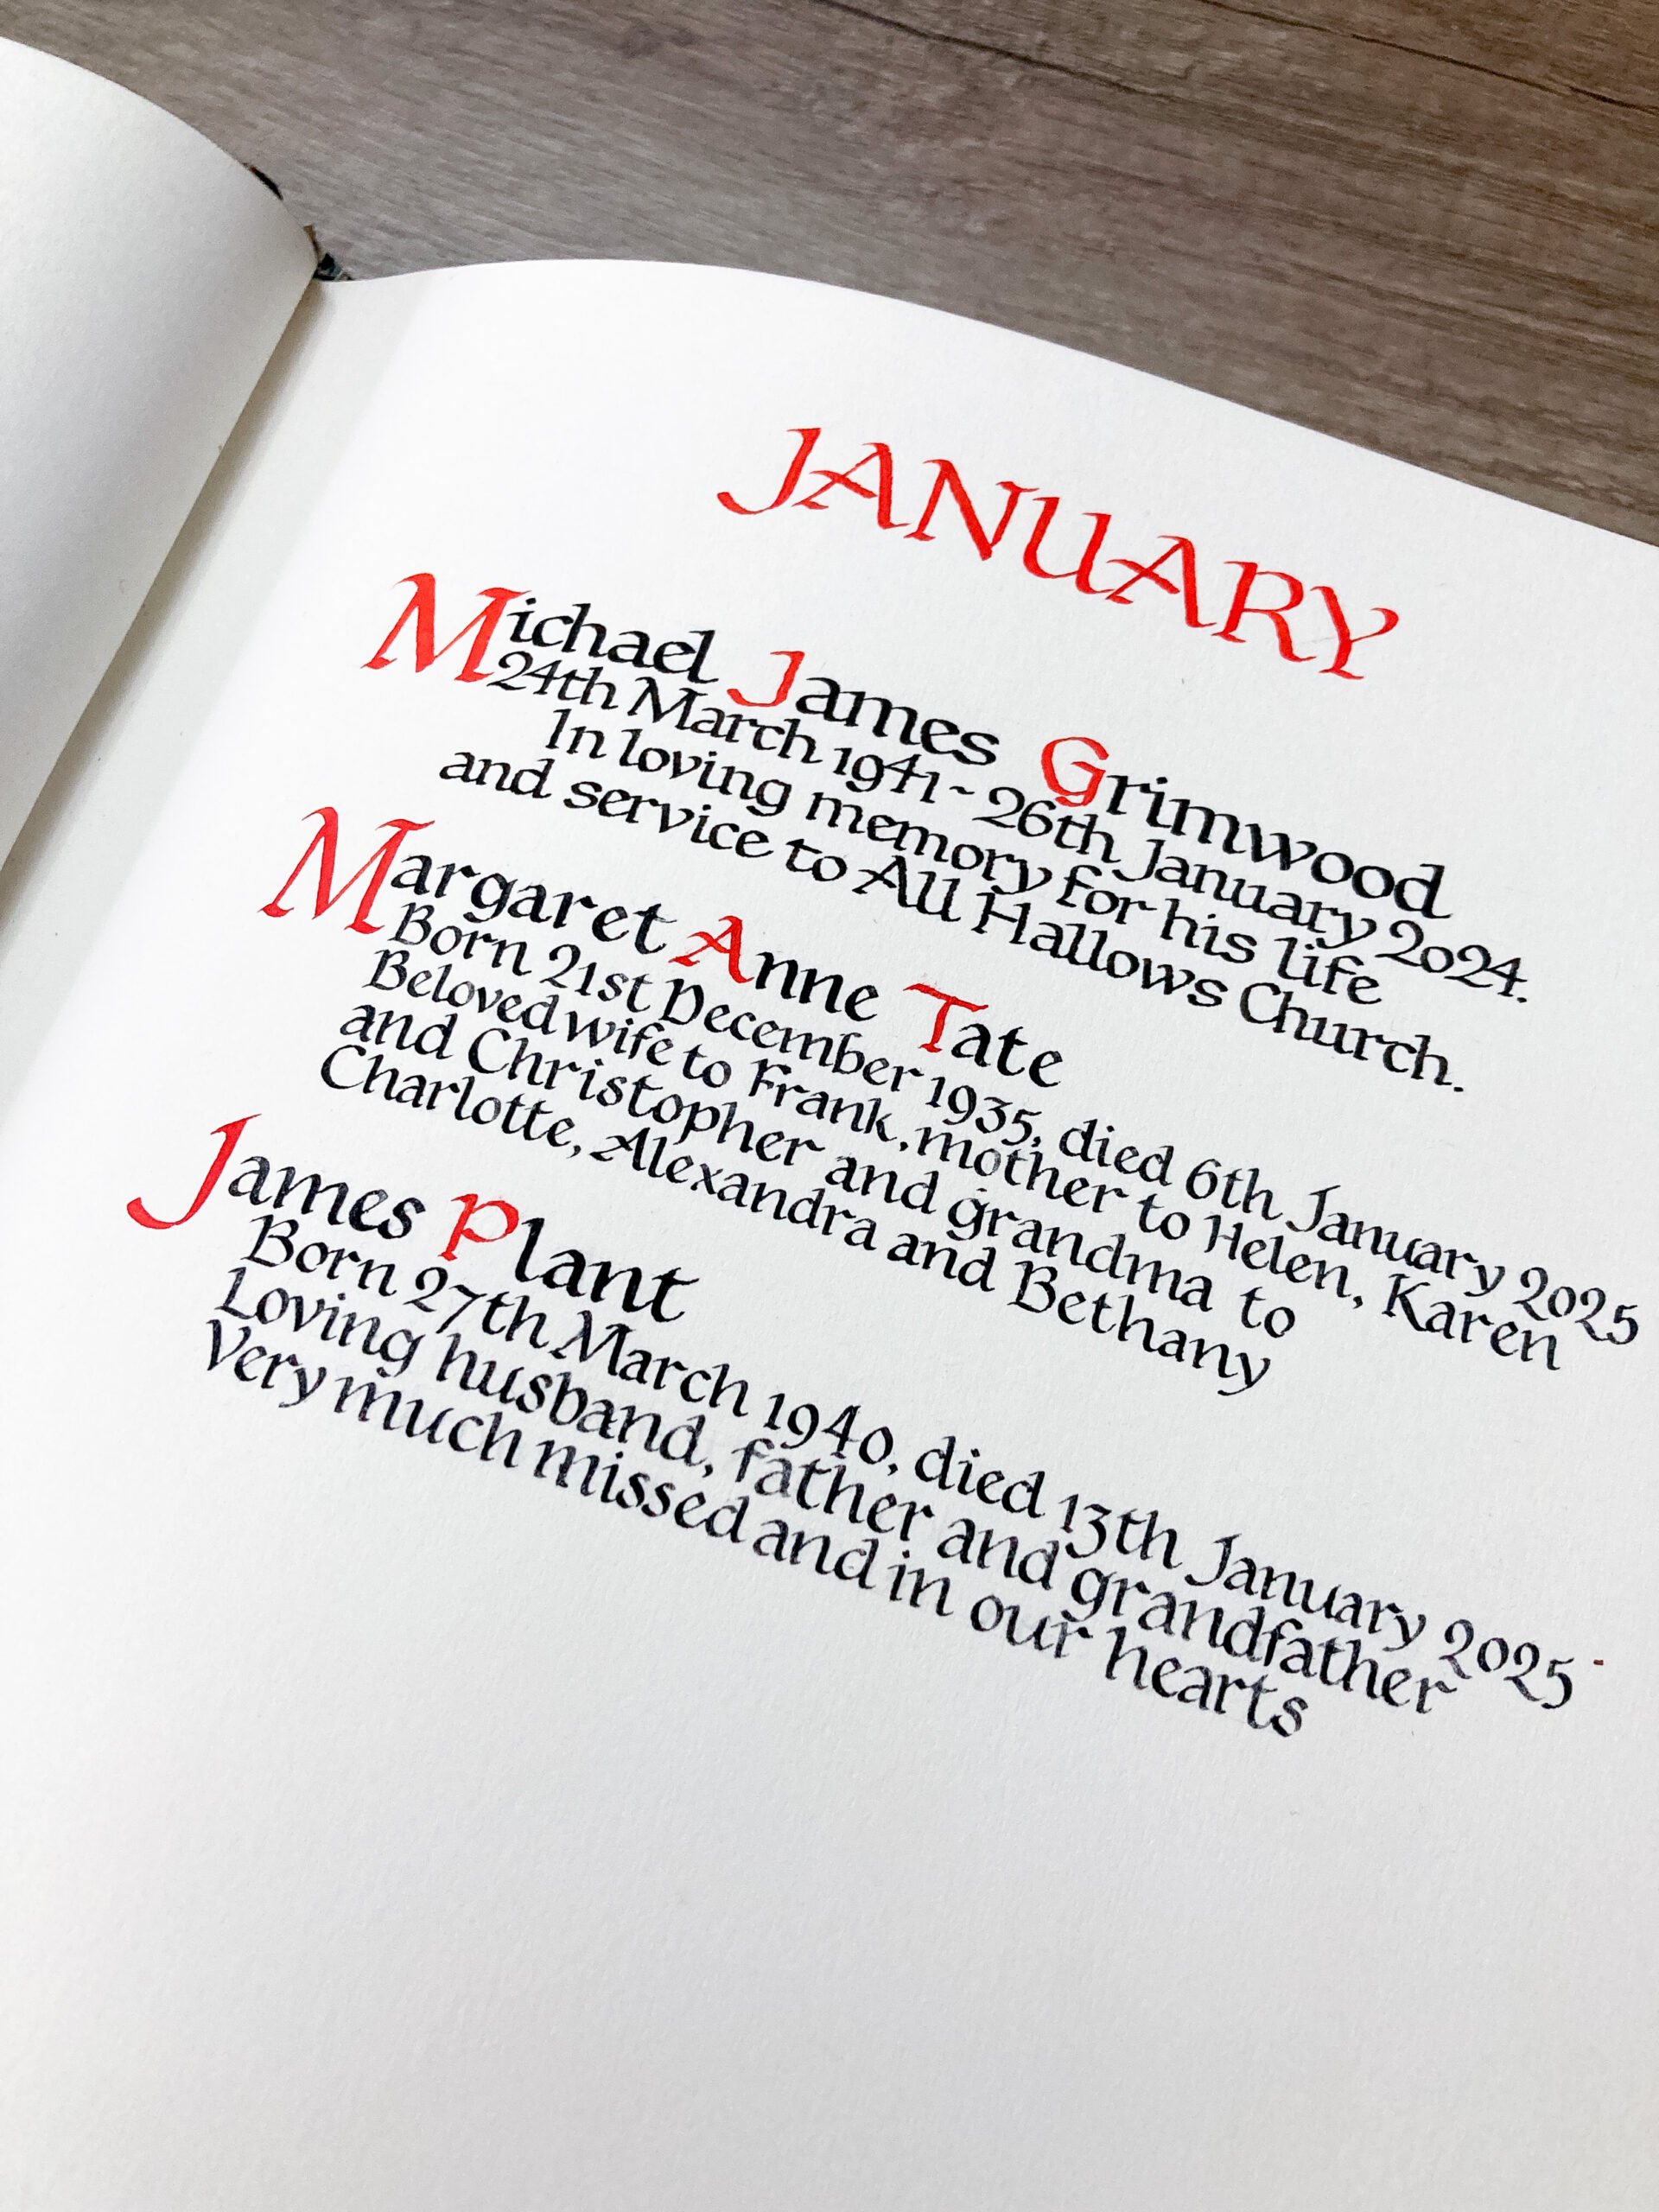 JANUARY
Michael James Grimwood
24th March 1941 ~ 26th January 2024.
In loving memory for his life
and service to All Hallows Church.
Margaret Anne Tate
Born 21st December 1935, died 6th January 2025
Beloved wife to Frank, mother to Helen, Karen
and Christopher and grandma to
Charlotte, Alexandra and Bethany
James Plant
Born 27th March 1940, died 13th January 2025
Loving husband, father and grandfather
Very much missed and in our hearts